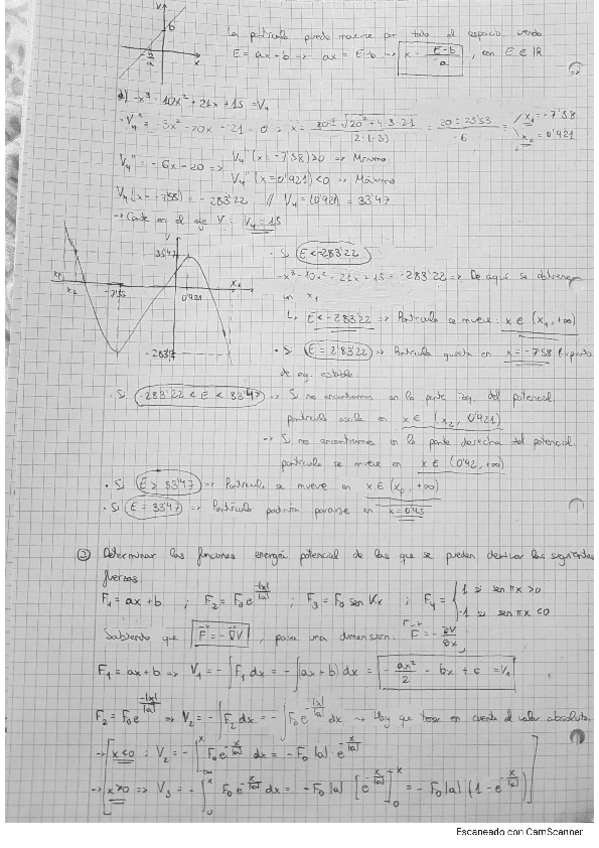 V
b
-b/a
x
La partícula puede moverse por todo el espacio, siendo
E = ax + b → ax = E - b → x = (E - b)/a, con E ∈ ℝ
d) -x³ - 10x² + 21x + 15 = V₄
x = (20 ± √(20² + 4·3·21))/(2·(-3)) = (20 ± 25'53)/-6 = x₁ = -7'58
x₂ = 0'921
V₄'' = -6x - 20 ⇒ V₄''(x = -7'58) > 0 ⇒ Mínimo
V₄''(x = 0'921) < 0 ⇒ Máximo
= -283'22 // V₄ = (0'921) = 33'47
→ Corte en el eje V: V₄ = 15
V
33'47
x₂
-7'58
0'921
-283'2
· Si E < -283'22
-283'22 ⇒ De aquí se obtienen
un x₁
E < -283'22 ⇒ Partícula se mueve: x ∈ (x₁, +∞)
· Si ⇒ Partícula quieta en x = -7'58 (punto
de eq. estable
· Si -283'22 < E < 33'47 → Si nos encontramos en la parte izq. del potencial
partícula oscila en x ∈ (x₂, 0'921)
→ Si nos encontramos en la parte derecha del potencial,
partícula se mueve en x ∈ (0'92, +∞)
· Si E > 33'47 → Partícula se mueve en x ∈ (xₚ, +∞)
· Si E = 33'47 → Partícula podría pararse en
② Determinar las funciones energía potencial de las que se pueden derivar las siguientes
fuerzas
F₁ = ax + b ; F₂ = F₀ e^(-|x|/|a|) ; F₃ = F₀ sen ; F₄ = { 1 si sen πx > 0
-1 si sen πx < 0
Sabiendo que F⃗ = -∇⃗V, para una dimensión: F⃗ = -∂V/∂x
F₁ = ax + b ⇒ V₁ = -∫F₁ dx = -∫(ax + b) dx = -ax²/2 - bx + c = V₁
F₂ = F₀ e^(-|x|/|a|) ⇒ V₂ = -∫F₂ dx = -∫F₀ e^(-|x|/|a|) dx → Hay que tener en cuenta el valor absoluto
→ x < 0 ; V₂ = -∫ F₀ e^(-x/|a|) dx = -F₀ |a| · e^(-x/|a|)
→ x > 0 ⇒ V₃ = -∫₀ˣ F₀ e^(-x/|a|) dx = -F₀ |a| [e^(-x/|a|)]₀ˣ = -F₀ |a| (1 - e^(-x/|a|))
Escaneado con CamScanner